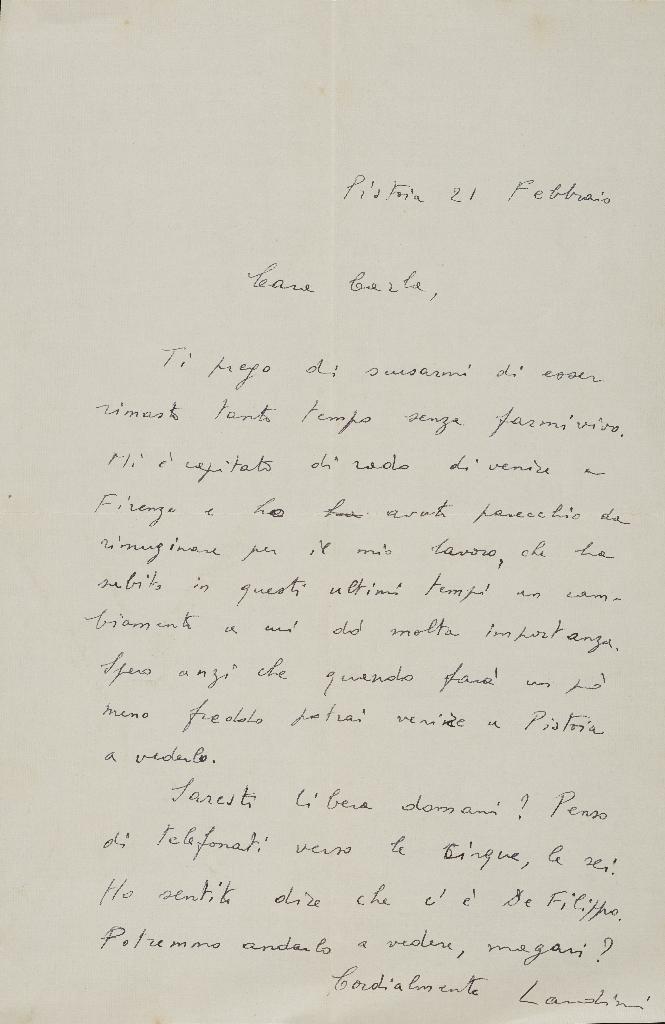 Pistoia 21 Febbraio
Cara Carla,
Ti prego di scusarmi di esser
rimasto tanto tempo senza farmi vivo.
Mi è capitato di rado di venire a
Firenze e ho ha avuto parecchio da
rimuginare per il mio lavoro, che ha
subito in questi ultimi tempi un cam-
biamento a cui dò molta importanza.
Spero anzi che quando farà un pò
meno freddo potrai venire a Pistoia
a vederlo.
Saresti libera domani? Penso
di telefonarti verso le cinque, le sei.
Ho sentito dire che c'è De Filippo.
Potremmo andarlo a vedere, magari?
Cordialmente Landini